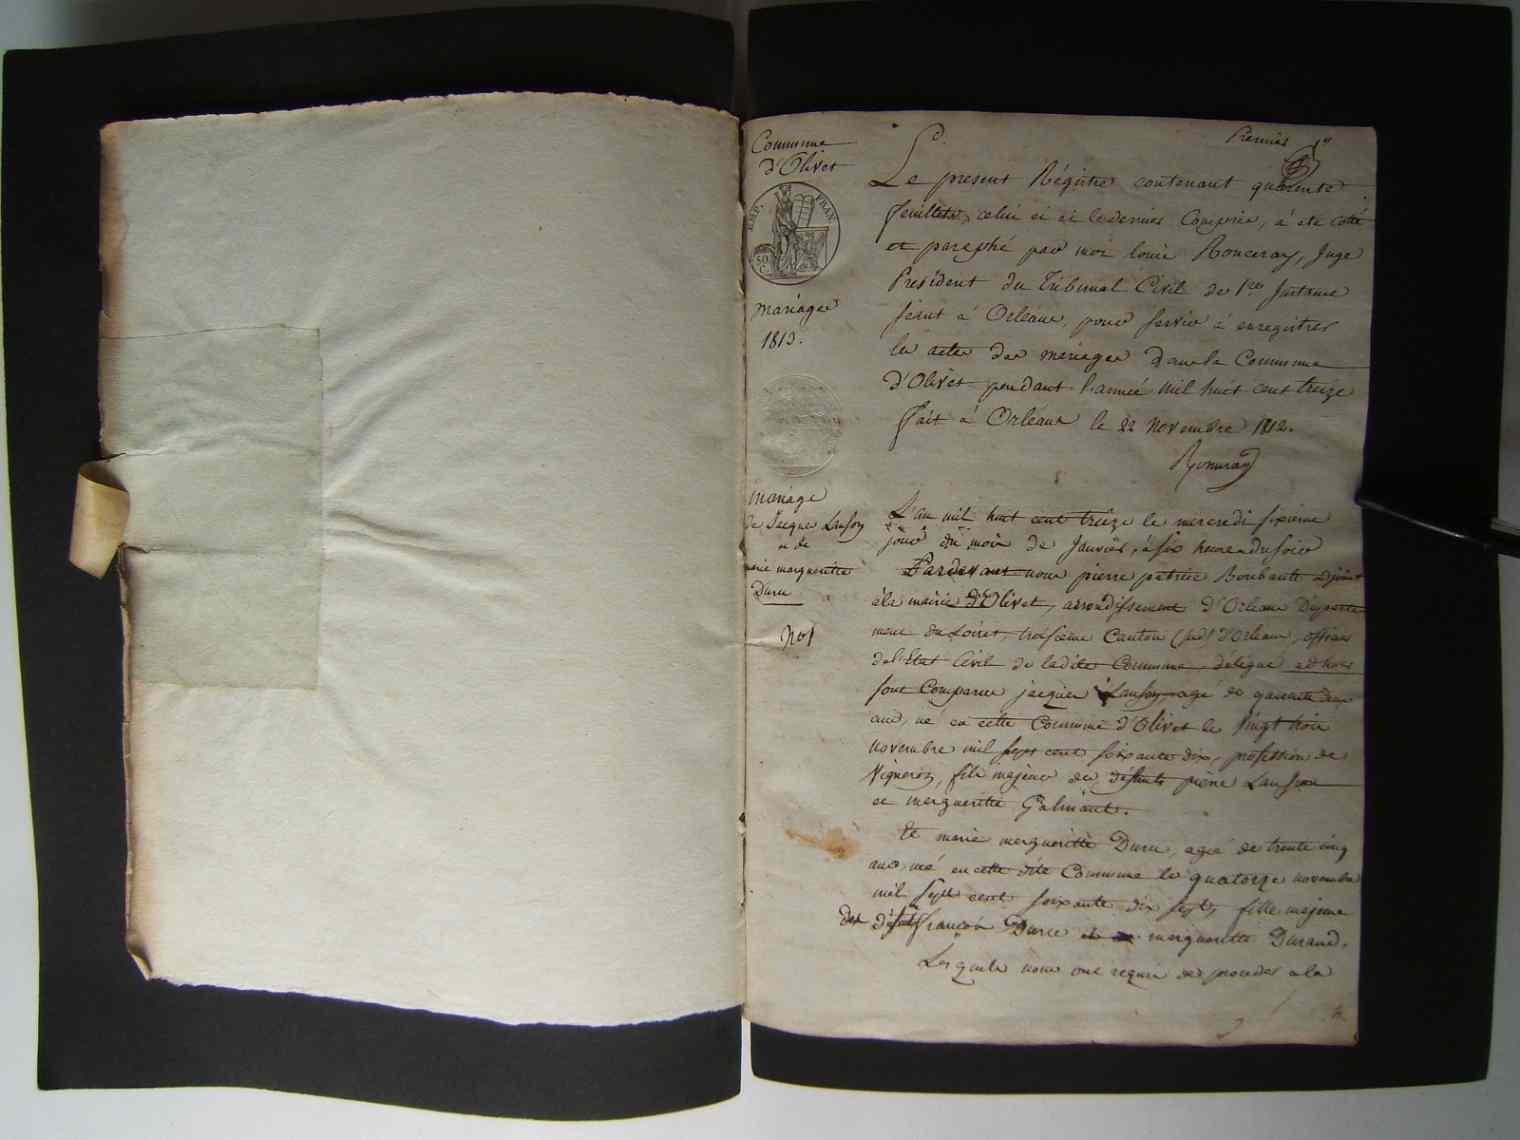 Commune
d'Olivet
EMP. FRAN.
50
C.
mariages
1813.
Premier 1er
Le present Régistre contenant quarente
feuillets, celui ci et le dernier Compris, à été cotté
et paraphé par moi louis Ronceray, Juge
President du Tribunal Civil de 1ere Instance
séant à Orléans, pour servir à enregistrer
les actes des mariages dans la Commune
d'Olivet pendant l'année mil huit cent treize
fait à Orléans le 22 Novembre 1812.
Ronceray
mariage
de Jacque Lanson
et de
marie margueritte
Duru
No 1
L'an mil huit cent treize le mercredi sixieme
jour du mois de Janvier, à six heures du soir
Pardevant nous pierre patrice Boubault adjoint
à la mairie d'Olivet, arrondissement d'Orléans Departe
ment du Loiret, troisieme Canton (sud) d'Orleans, officier
del'Etat Civil de ladite Commune, délégué ad hoc
sont Comparus jacques Lanson, agé de quarante deux
ans, né en cette Commune d'Olivet le vingt trois
novembre mil sept cent soixante dix, profession de
Vigneron, fils majeur des défunts pierre Lanson
et margueritte Galmant.
Et marie margueritte Duru, agée de trente cinq
ans, née en cette dite Commune le quatorze novembre
mil sept cent soixante dix sept, fille majeure
des défunts francois Duru et margueritte Durand.
Lesquels nous ont requis de proceder a la